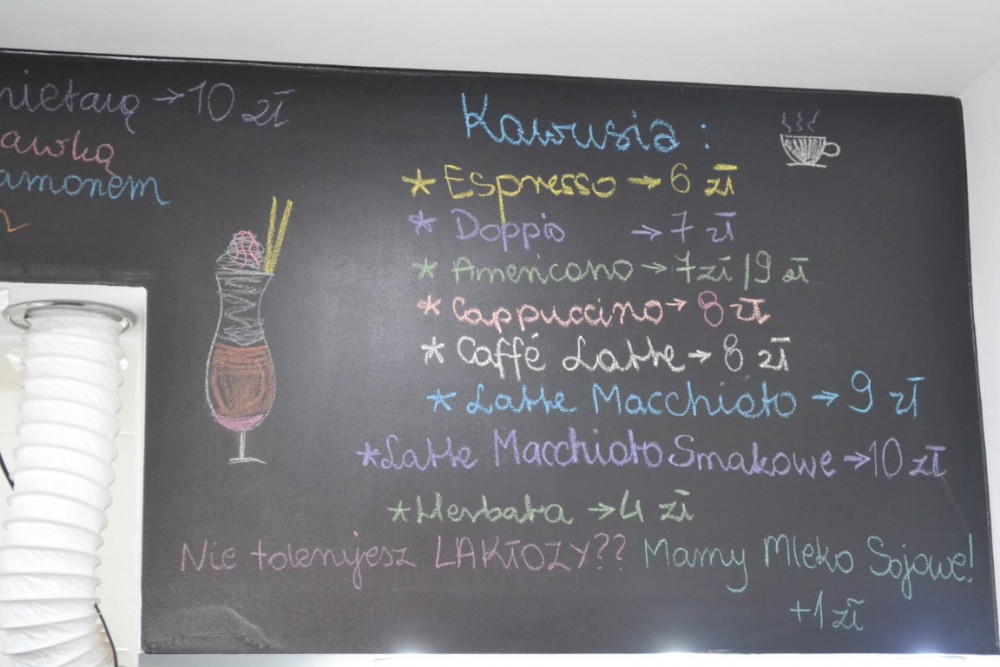 → 10 zł
Kawusia:
* Espresso → 6 zł
* Doppio → 7 zł
* Americano → 7 zł / 9 zł
* Cappuccino → 8 zł
* Caffé Latte → 8 zł
* Latte Macchiato → 9 zł
* Latte Macchiato Smakowe → 10 zł
* Herbata → 4 zł
Nie tolerujesz LAKTOZY?? Mamy Mleko Sojowe!
+1 zł